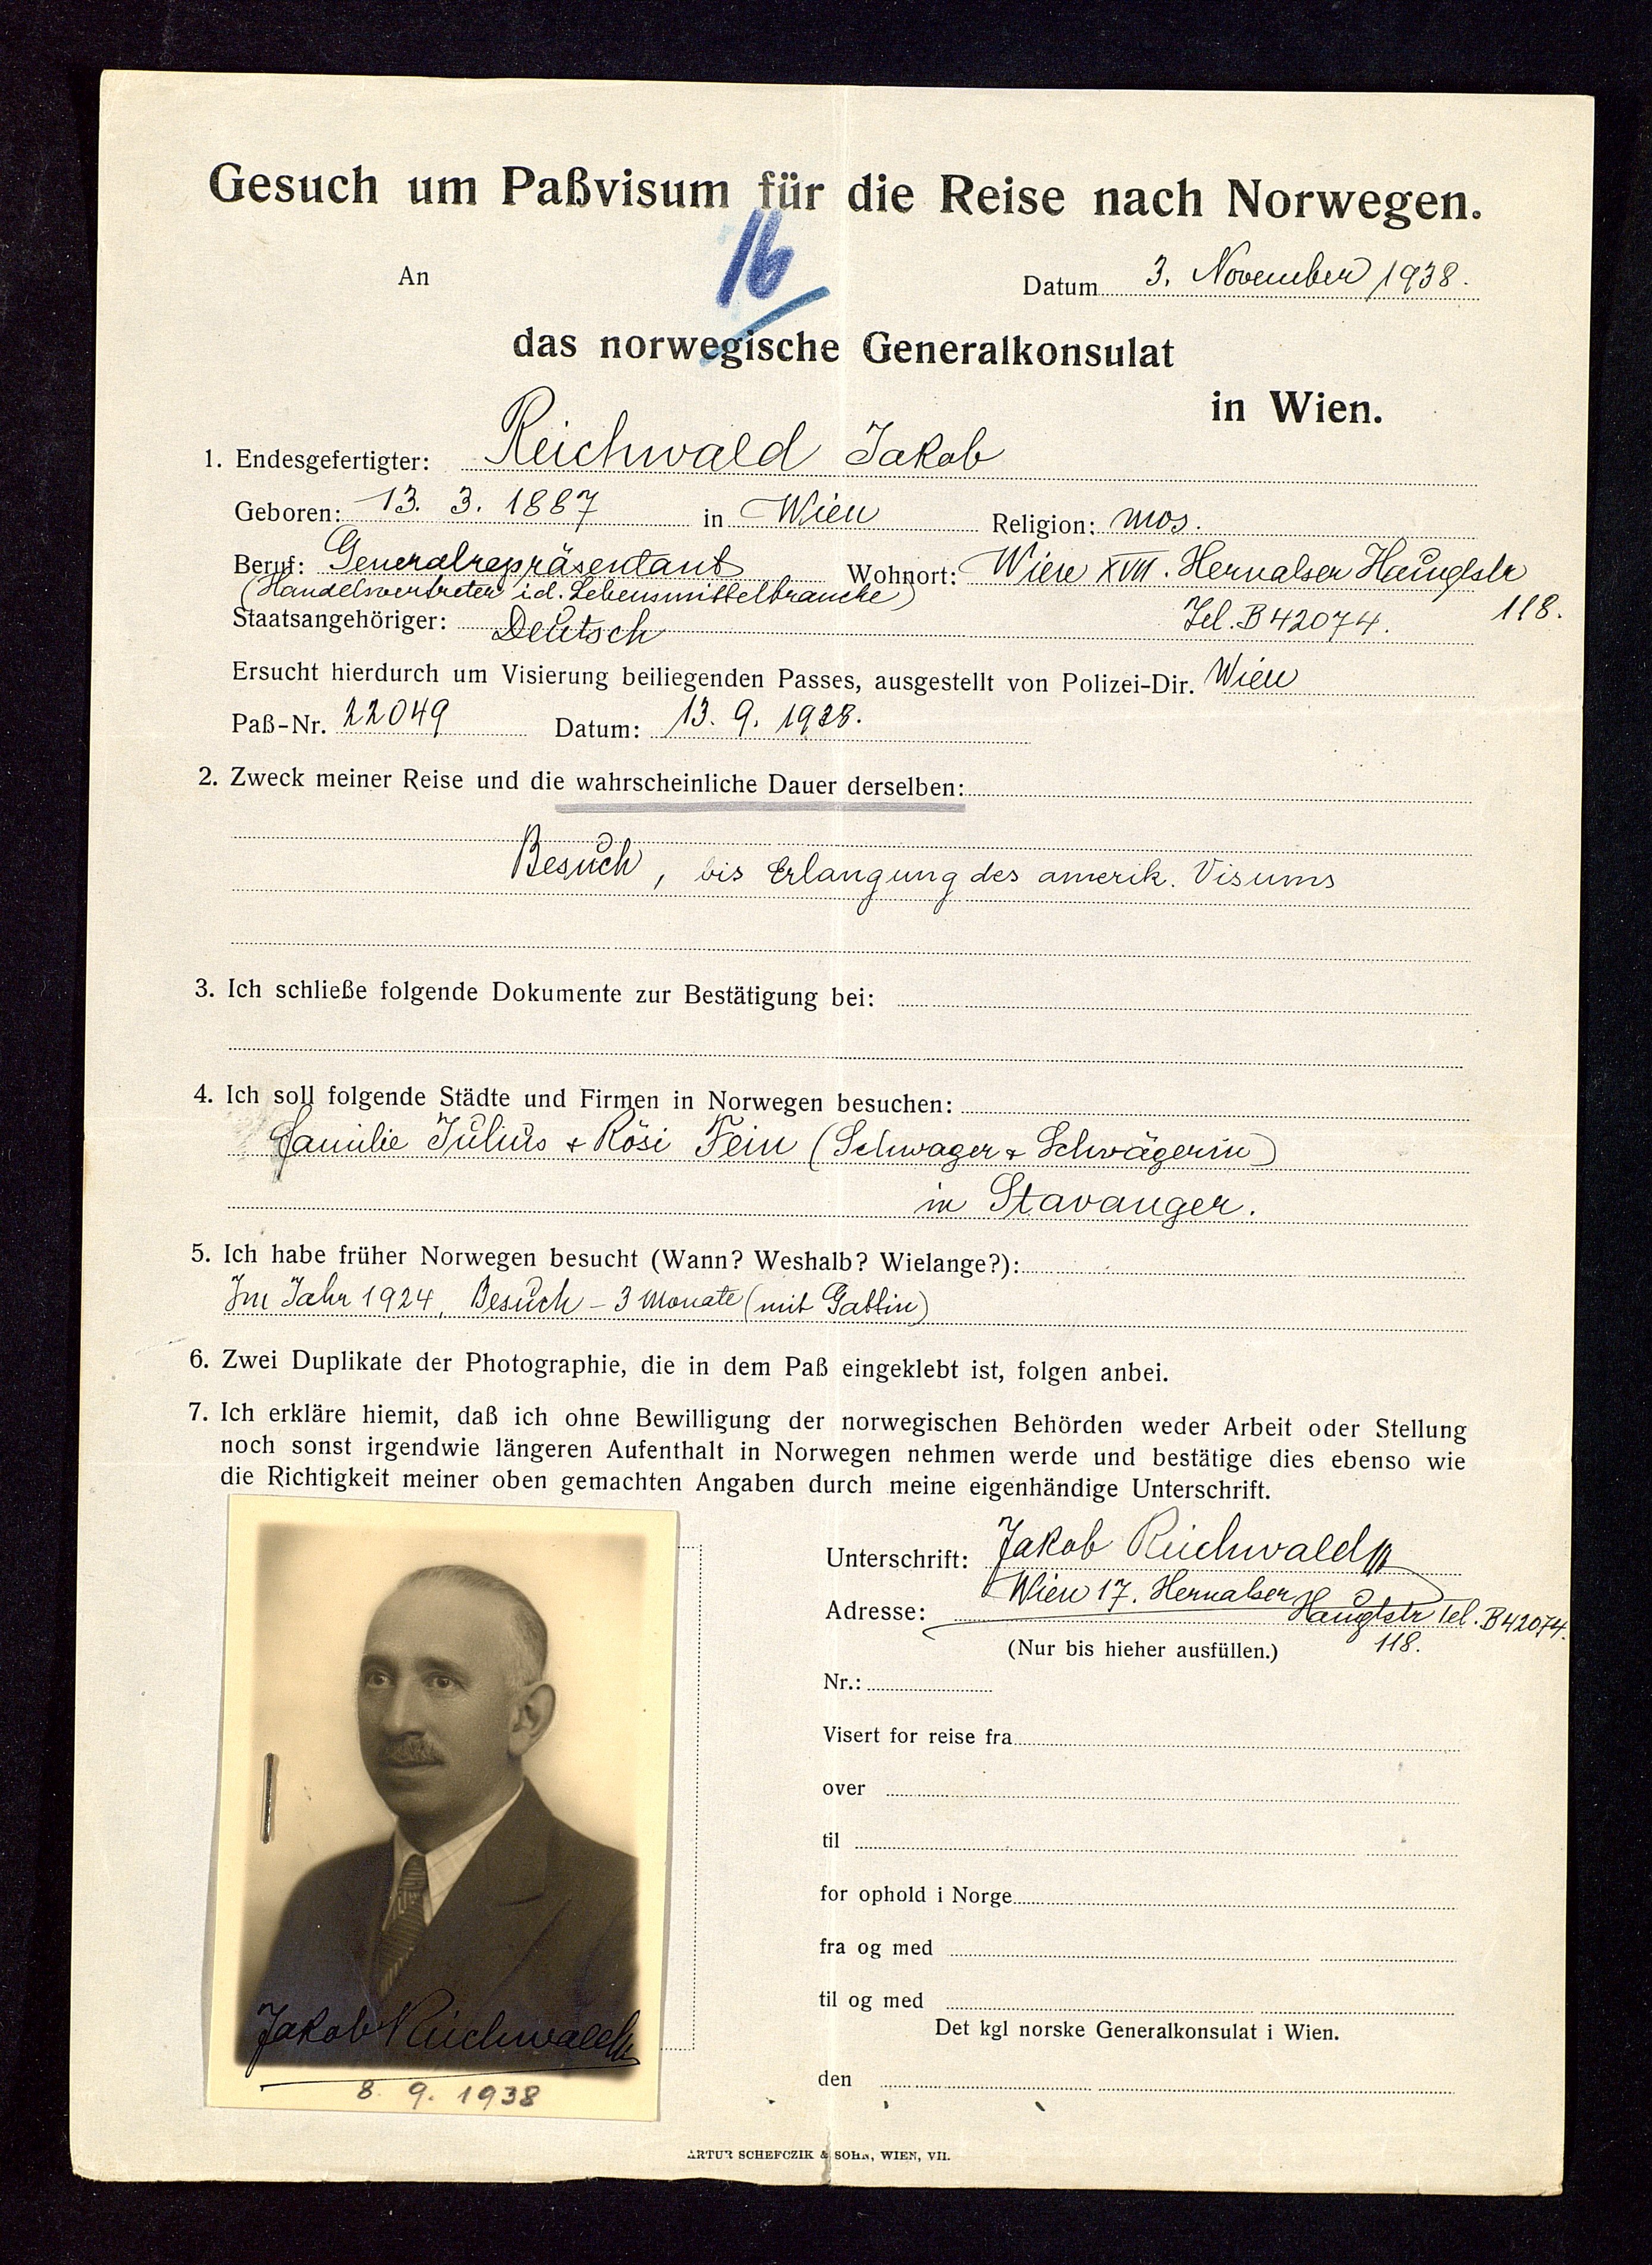 Gesuch um Paßvisum für die Reise nach Norwegen.
16
An
Datum 3. November 1938.
das norwegische Generalkonsulat
in Wien.
1. Endesgefertigter: Reichwald Jakob
Geboren: 13. 3. 1887 in Wien Religion: mos.
Beruf: Generalrepräsentant Wohnort: Wien XVII. Hernalser Hauptstr
(Handelsvertreter i.d. Lebensmittelbranche) 118.
Staatsangehöriger: Deutsch Tel. B 42074.
Ersucht hierdurch um Visierung beiliegenden Passes, ausgestellt von Polizei-Dir. Wien
Paß-Nr. 22049 Datum: 13. 9. 1938.
2. Zweck meiner Reise und die wahrscheinliche Dauer derselben:
Besuch, bis Erlangung des amerik. Visums
3. Ich schließe folgende Dokumente zur Bestätigung bei:
4. Ich soll folgende Städte und Firmen in Norwegen besuchen:
Familie Julius + Rösi Fein (Schwager + Schwägerin)
in Stavanger.
5. Ich habe früher Norwegen besucht (Wann? Weshalb? Wielange?):
Im Jahr 1924, Besuch – 3 Monate (mit Gattin)
6. Zwei Duplikate der Photographie, die in dem Paß eingeklebt ist, folgen anbei.
7. Ich erkläre hiemit, daß ich ohne Bewilligung der norwegischen Behörden weder Arbeit oder Stellung
noch sonst irgendwie längeren Aufenthalt in Norwegen nehmen werde und bestätige dies ebenso wie
die Richtigkeit meiner oben gemachten Angaben durch meine eigenhändige Unterschrift.
Unterschrift: Jakob Reichwald
Adresse: Wien 17. Hernalser Hauptstr Tel. B42074.
118.
(Nur bis hieher ausfüllen.)
Nr.:
Visert for reise fra
over
til
for ophold i Norge
fra og med
til og med
Det kgl norske Generalkonsulat i Wien.
den
Jakob Reichwald
8. 9. 1938
ARTUR SCHEFCZIK & SOHN, WIEN, VII.